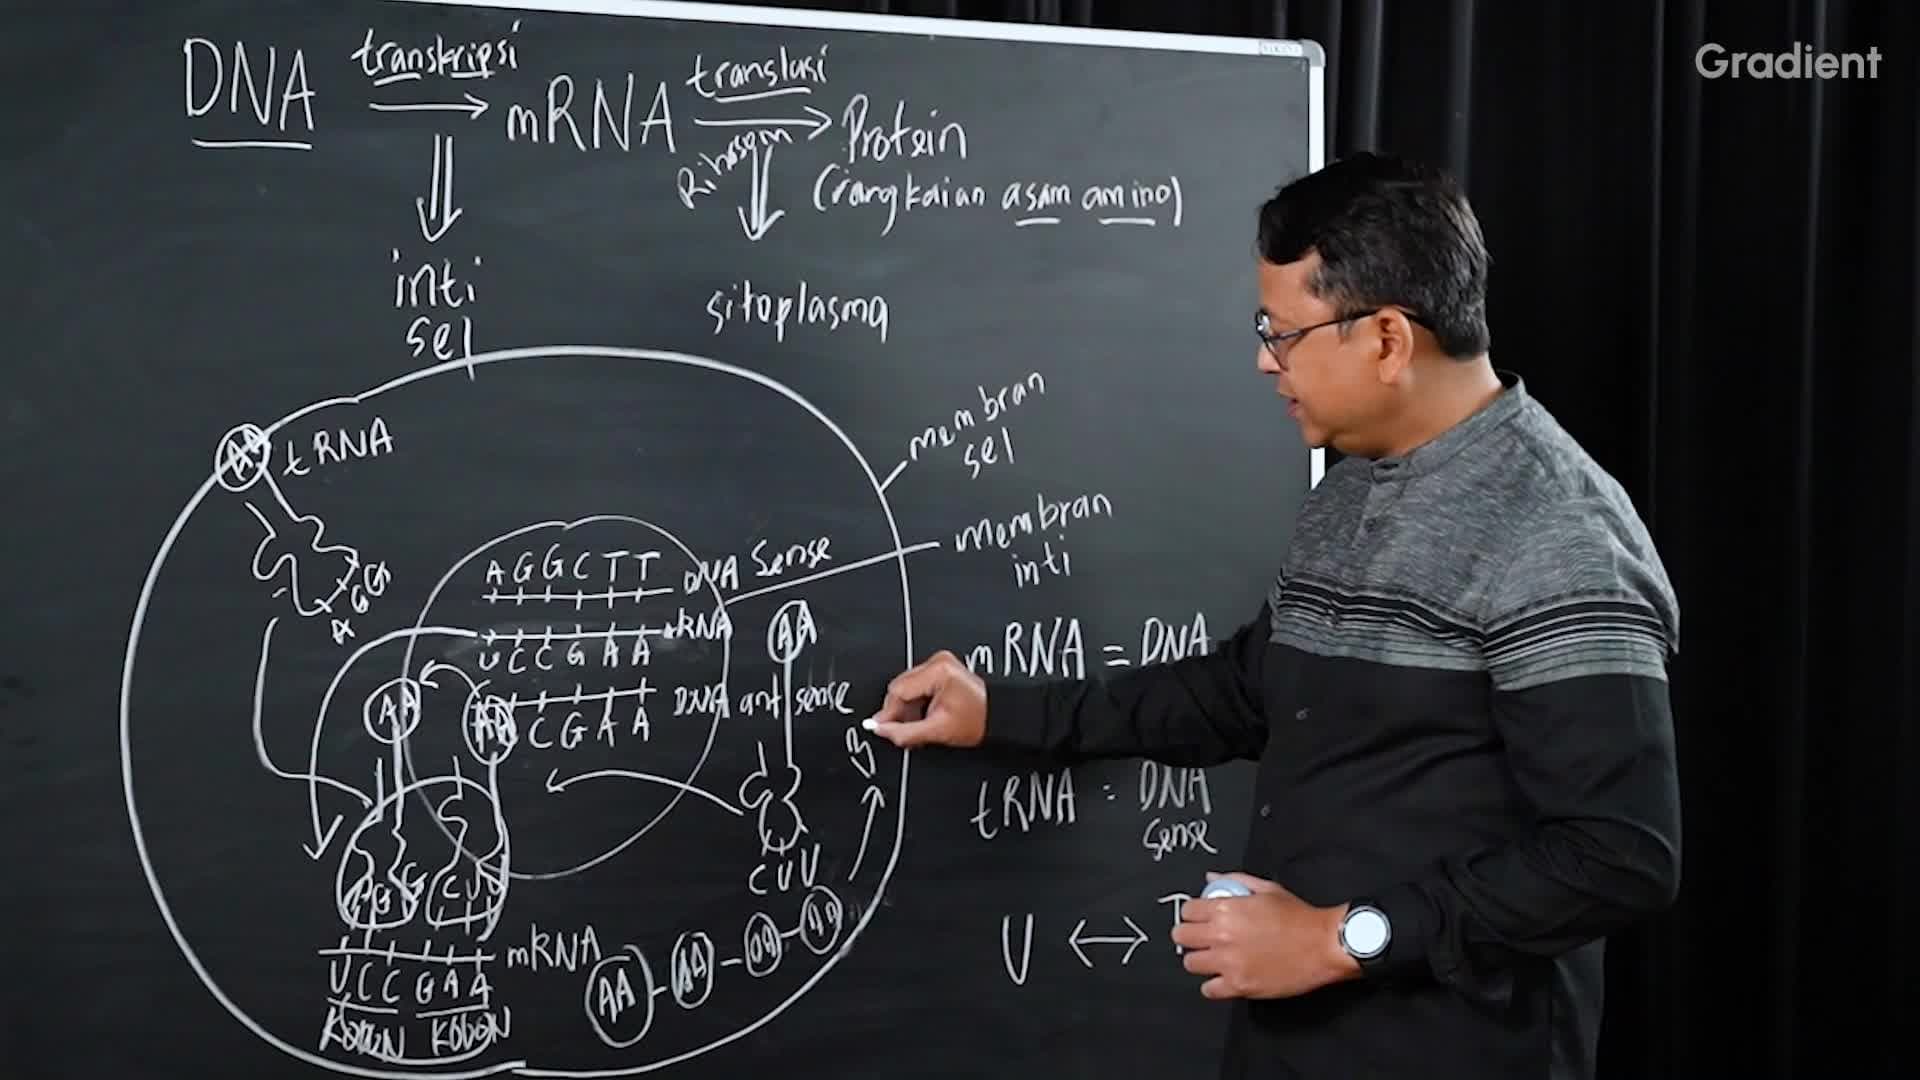 Gradient
DNA
transkripsi
mRNA
translasi
Ribosom
Protein
(rangkaian asam amino)
inti
sel
sitoplasma
membran
sel
membran
inti
AA
tRNA
A G G
A G G C T T
DNA Sense
mRNA
U C C G A A
AA
AA
AA
C G A A
DNA antisense
C U U
mRNA = DNA
tRNA = DNA
sense
U ↔ T
G G C U
mRNA
U C C G A A
KODON KODON
AA - AA - AA - AA